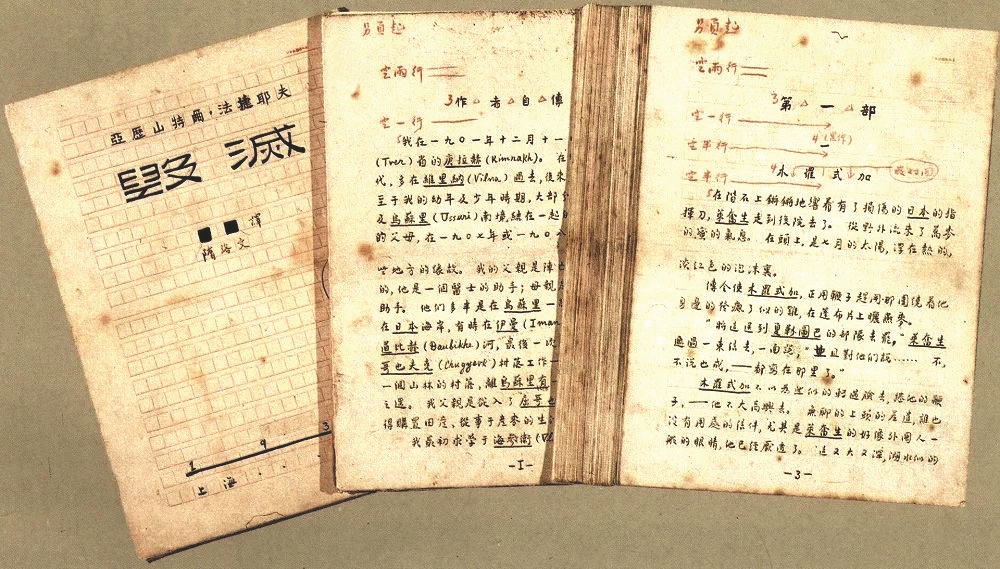 亞歷山特爾・法捷耶夫
毀滅
■■ 譯
隋洛文
1 9 3
上海
另頁起
空兩行
3作△者△自△傳
空一行
我在一九〇一年十二月十一
(Tver)省的庚拉赫(Kimrakh)。在
代,多在維里納(Vilna)過去,後來
至于我的幼年及少年時期,大部
及烏蘇里(Ussuri)南境,結在一起
的父母,在一九〇七年或一九〇八
些地方的緣故。我的父親是陣亡
的,他是一個醫士的助手;母親
助手。他們多半是在烏蘇里一
在日本海岸,有時在伊曼(Iman
道比赫(Daubikhe)河,最後一次
哥也夫克(Chuguevk)村落工作—
一個山林的村落,離烏蘇里有
之遥。我父親是從入了屈哥也
得購置田產、從事于產麥的生
我最初求學于海參衛(Vl
—1—
另頁起
空兩行
3第△一△部
空一行
4一
空半行
4木羅式加
空半行
在階石上鏘鏘地響着有了損傷的日本的指
揮刀,萊奮生走到後院去了。從野外流來了蕎麥
的蜜的氣息。在頭上,是七月的太陽,浮在熱的,
淡紅色的泡沫裏。
傳令使木羅式加,正用鞭子趕開那圍繞着他
的雞,在蓬布片上曬燕麥。
“將這送到夏勒圖巴的部隊去罷,”萊奮生
遞過一束信去,一面說,“並且對他們說…… 不,
不說也成,——都寫在那里了。”
木羅式加不以為然似的轉過臉去,捲他的鞭
子,——他不大高興去。無聊的上頭的差遣,誰也
沒有用處的信件,尤其是萊奮生的好像外國人一
般的眼睛,他已經厭透了。這又大又深,湖水似的
—3—